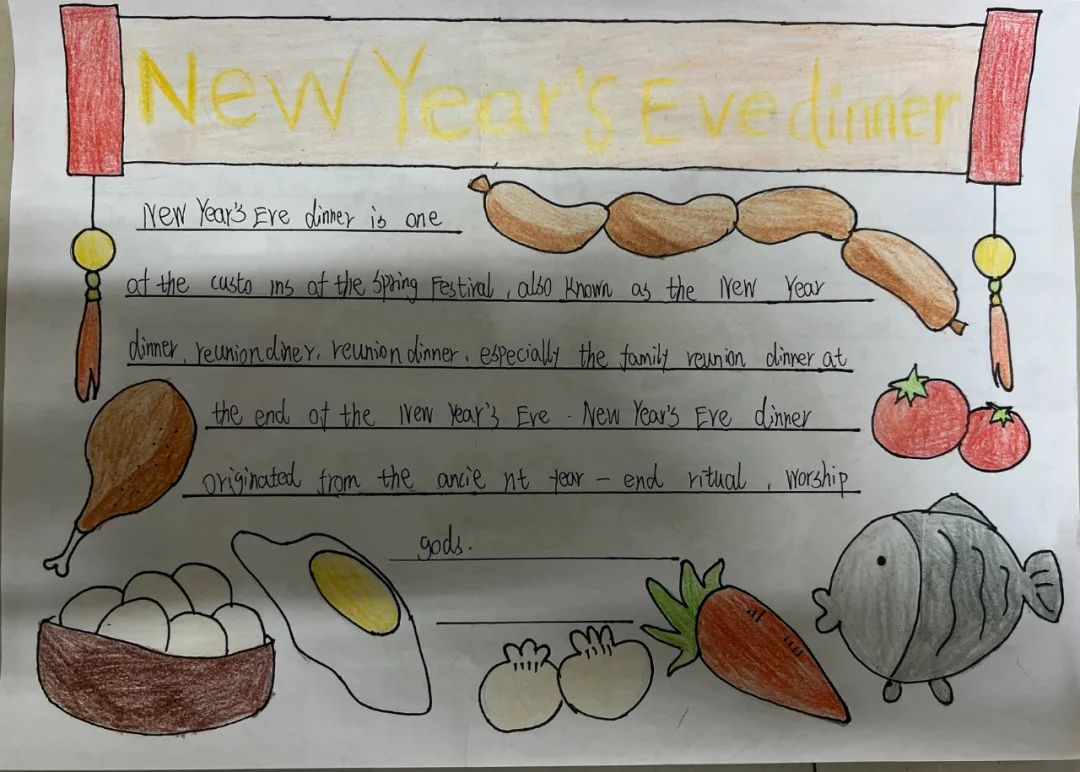 New Year's Eve dinner
New Year's Eve dinner is one
of the custo ms of the Spring Festival, also known as the New Year
dinner, reunion diner, reunion dinner, especially the family reunion dinner at
the end of the New Year's Eve. New Year's Eve dinner
originated from the ancie nt year-end ritual, worship
gods.